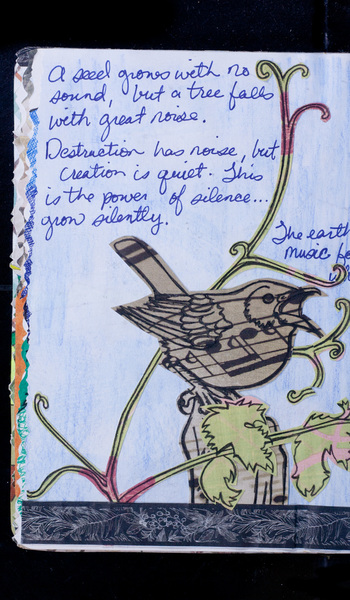 A seed grows with no
sound, but a tree falls
with great noise.
Destruction has noise, but
creation is quiet. This
is the power of silence...
grow silently.
The earth
music